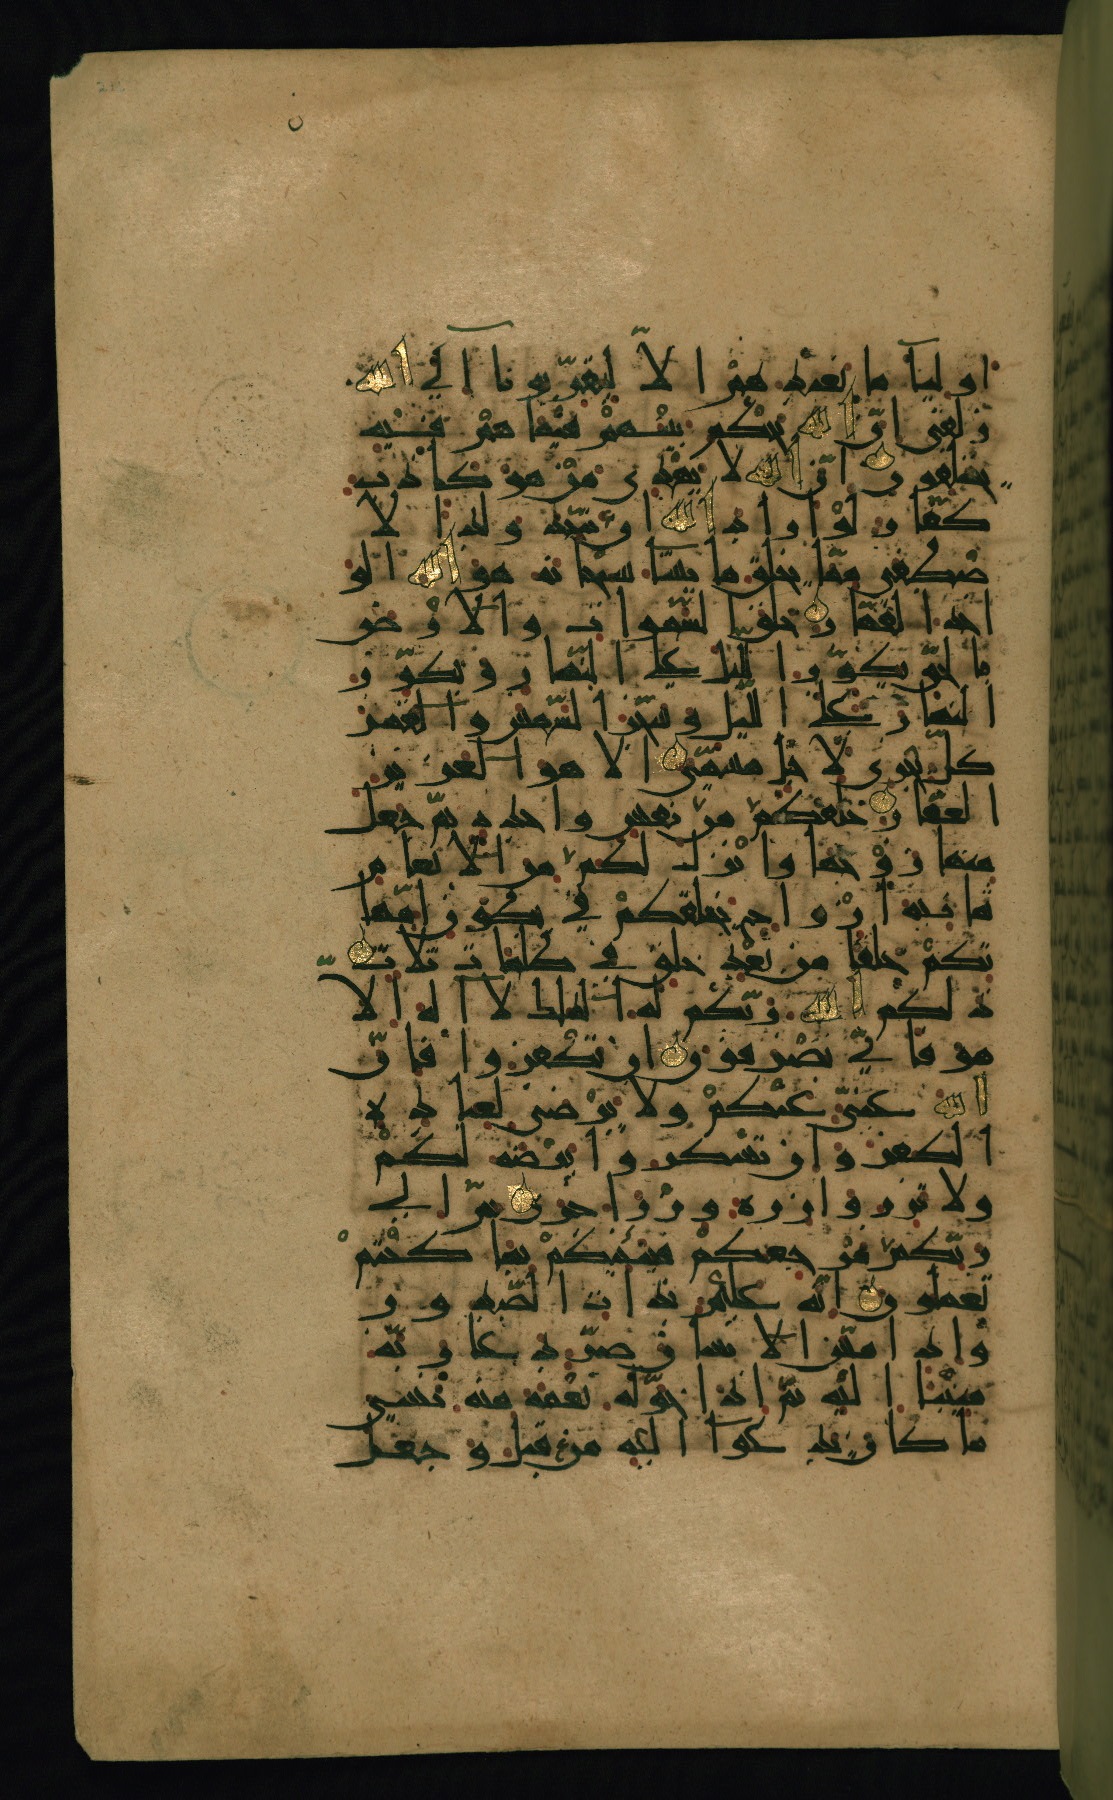 اوليآ ما نعبدهم الا ليقرّبونا آلي الله
زلفى انّ الله يحكم بينهم فيما هم فيه
يختلفون انّ الله لا يهدي من هو كاذب
كفّار لو اراد الله ان يتّخذ ولدا لا
صطفى ممّا يخلق ما يشآ سبحانه هو الله الو
احد القهّار خلق السّموات والارض
بالحقّ يكوّر اللّيل على النّهار ويكوّر
النهار على اللّيل وسخّر الشّمس والقمر
كلّ يجرى لاجل مسمّى الا هو العزيز
الغفّار خلقكم من نفس واحدة ثمّ جعل
منها زوجها وانزل لكم من الانعام
ثمانية ازواج يخلقكم في بطون امّها
تكم خلقا من بعد خلق في ظلمات ثلاث
ذلكم الله ربّكم له الملك لا آله الا
هو فانّي تصرفون ان تكفروا فانّ
الله غنىّ عنكم ولا يرضى لعباده
الكفر وان تشكروا يرضه لكم
ولا تزر وازرة وزر اخرى ثمّ الى
ربّكم مرجعكم فينبئكم بما كنتم
تعملون انّه عليم بذات الصّدور
واذا مسّ الانسان ضرّ دعا ربّه
منيبا اليه ثمّ اذا خوّله نعمة منه نسي
ما كان يدعوآ اليه من قبل وجعل